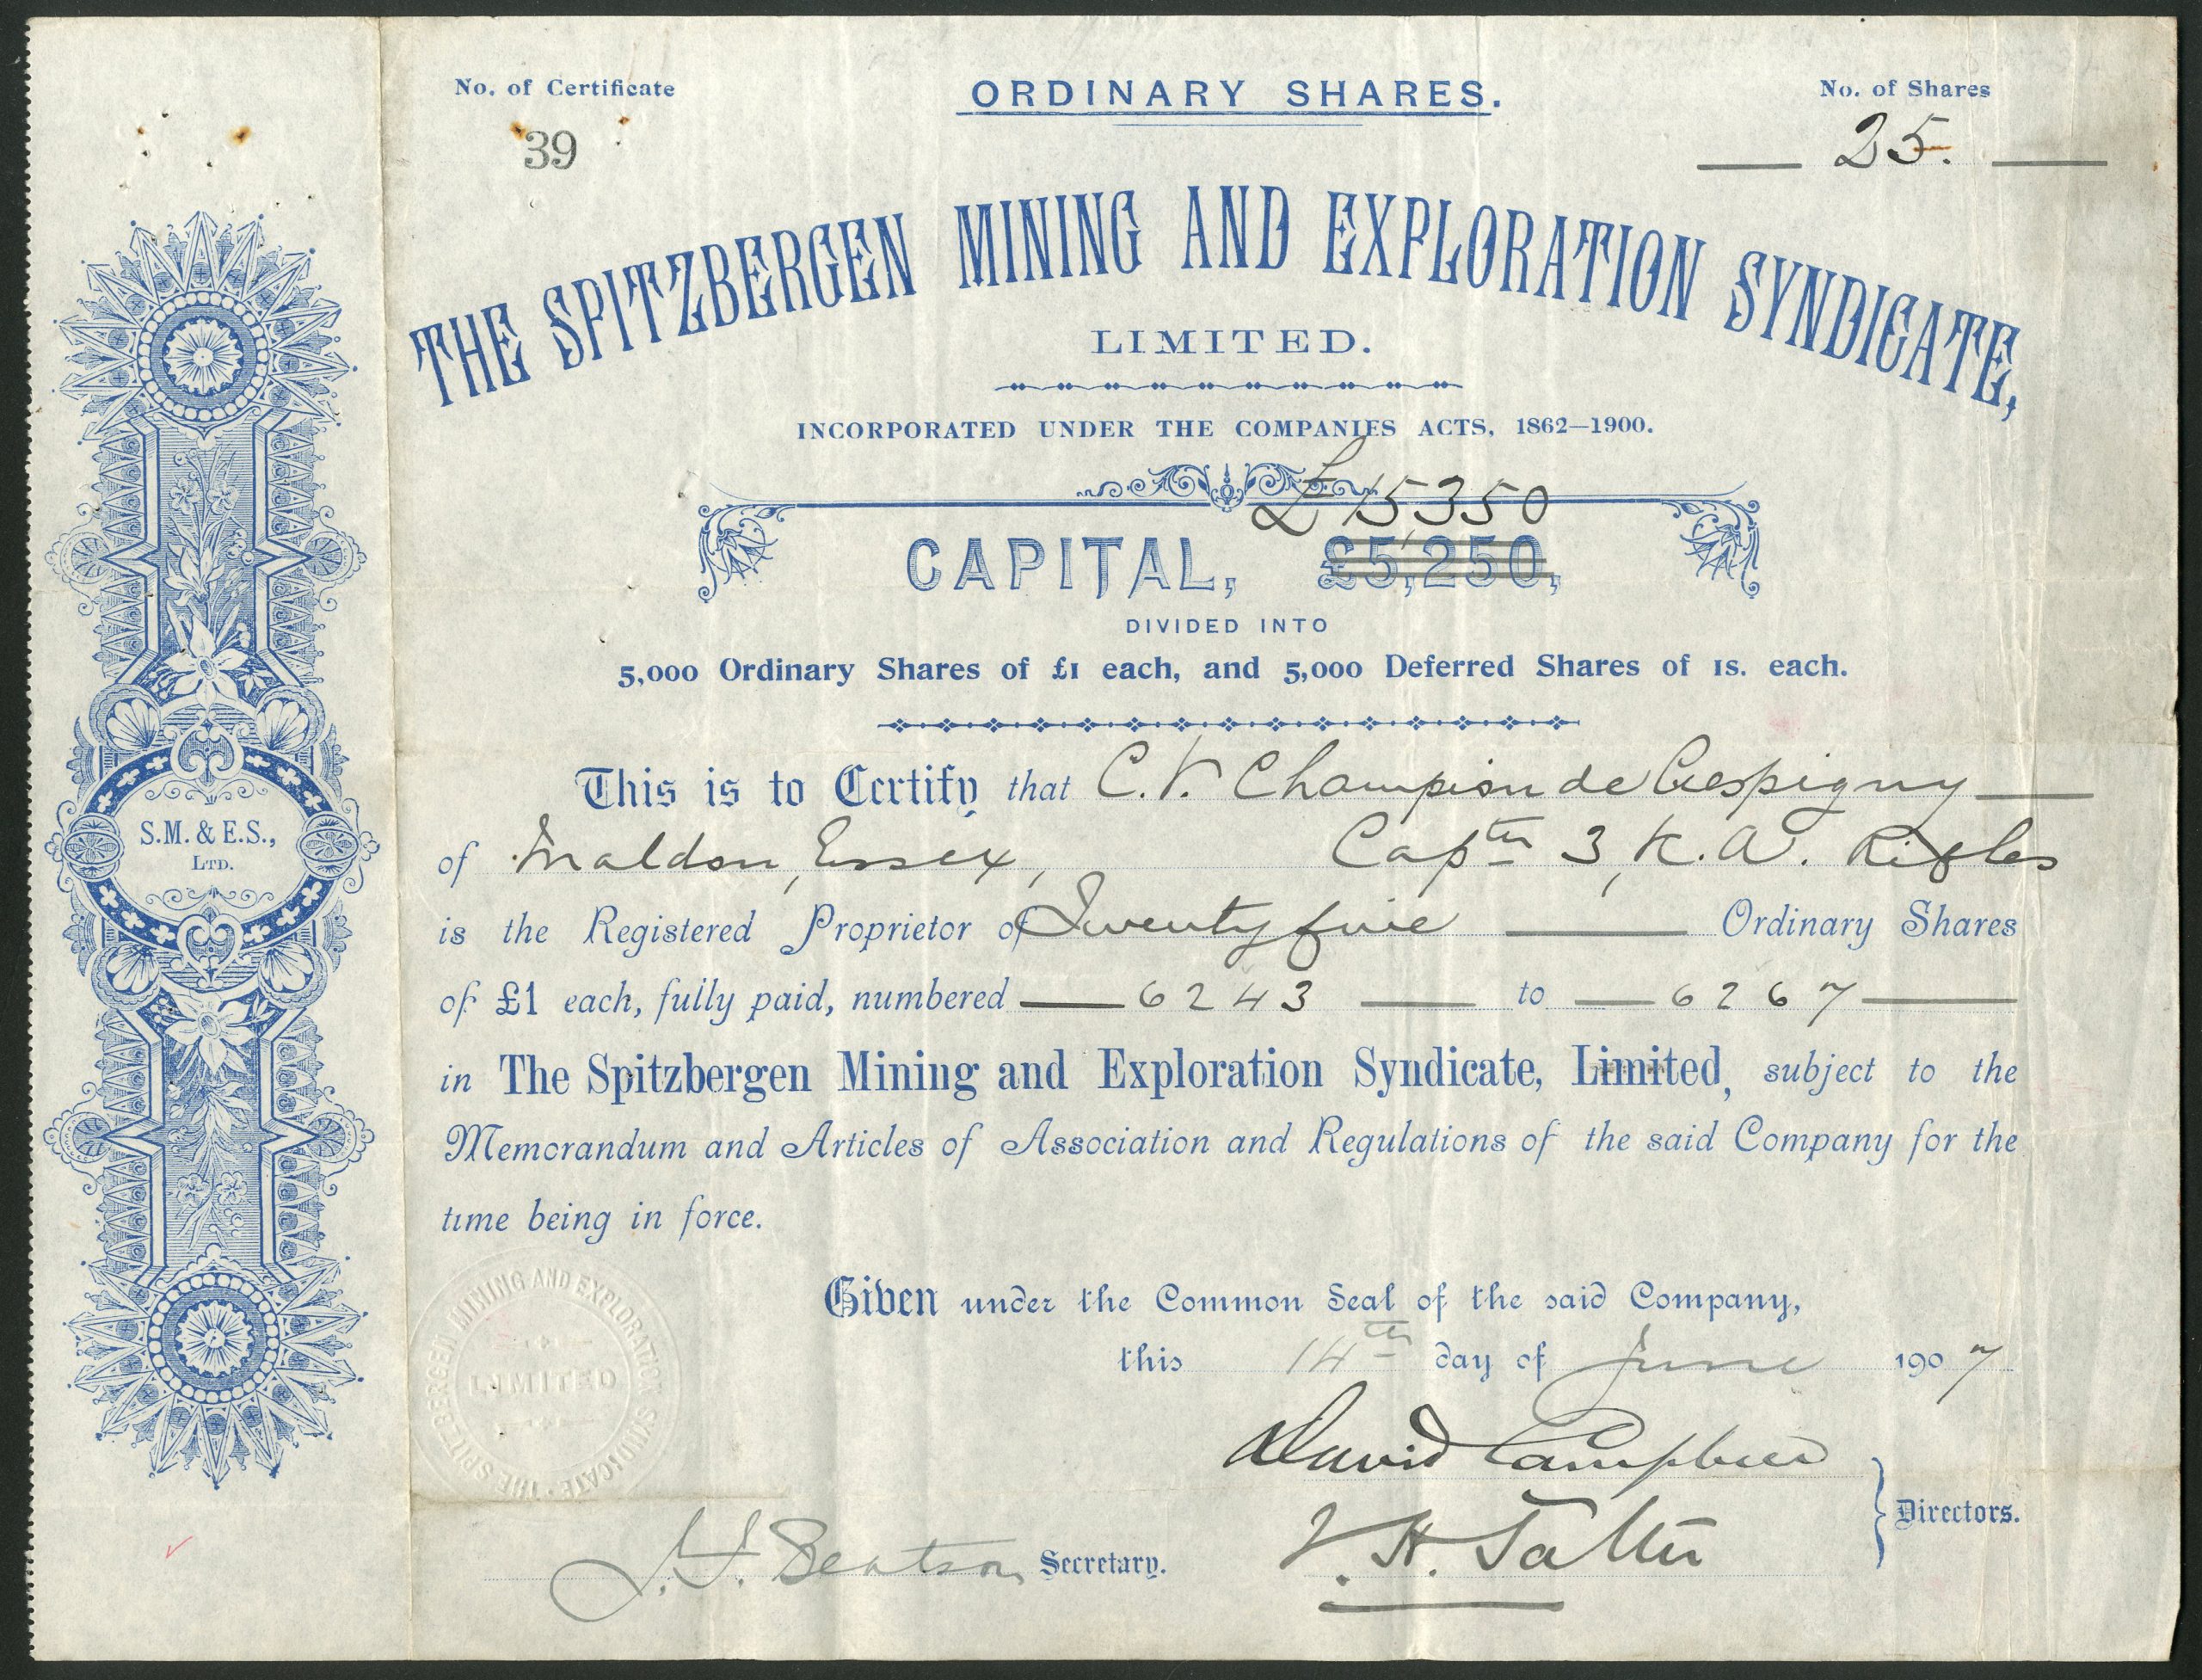 No. of Certificate
39
ORDINARY SHARES.
No. of Shares
25.
THE SPITZBERGEN MINING AND EXPLORATION SYNDICATE,
LIMITED.
INCORPORATED UNDER THE COMPANIES ACTS, 1862—1900.
£15350
CAPITAL, £5,250,
DIVIDED INTO
5,000 Ordinary Shares of £1 each, and 5,000 Deferred Shares of 1s. each.
This is to Certify that C. V. Champion de Crespigny
of Maldon, Essex, Captn 3, K. A. Rifles
is the Registered Proprietor of Twenty five Ordinary Shares
of £1 each, fully paid, numbered 6243 to 6267
in The Spitzbergen Mining and Exploration Syndicate, Limited, subject to the
Memorandum and Articles of Association and Regulations of the said Company for the
time being in force.
Given under the Common Seal of the said Company,
this 14th day of June 1907
David Campbell
Directors.
Secretary.
S.M. & E.S.,
LTD.
THE SPITZBERGEN MINING AND EXPLORATION SYNDICATE
LIMITED